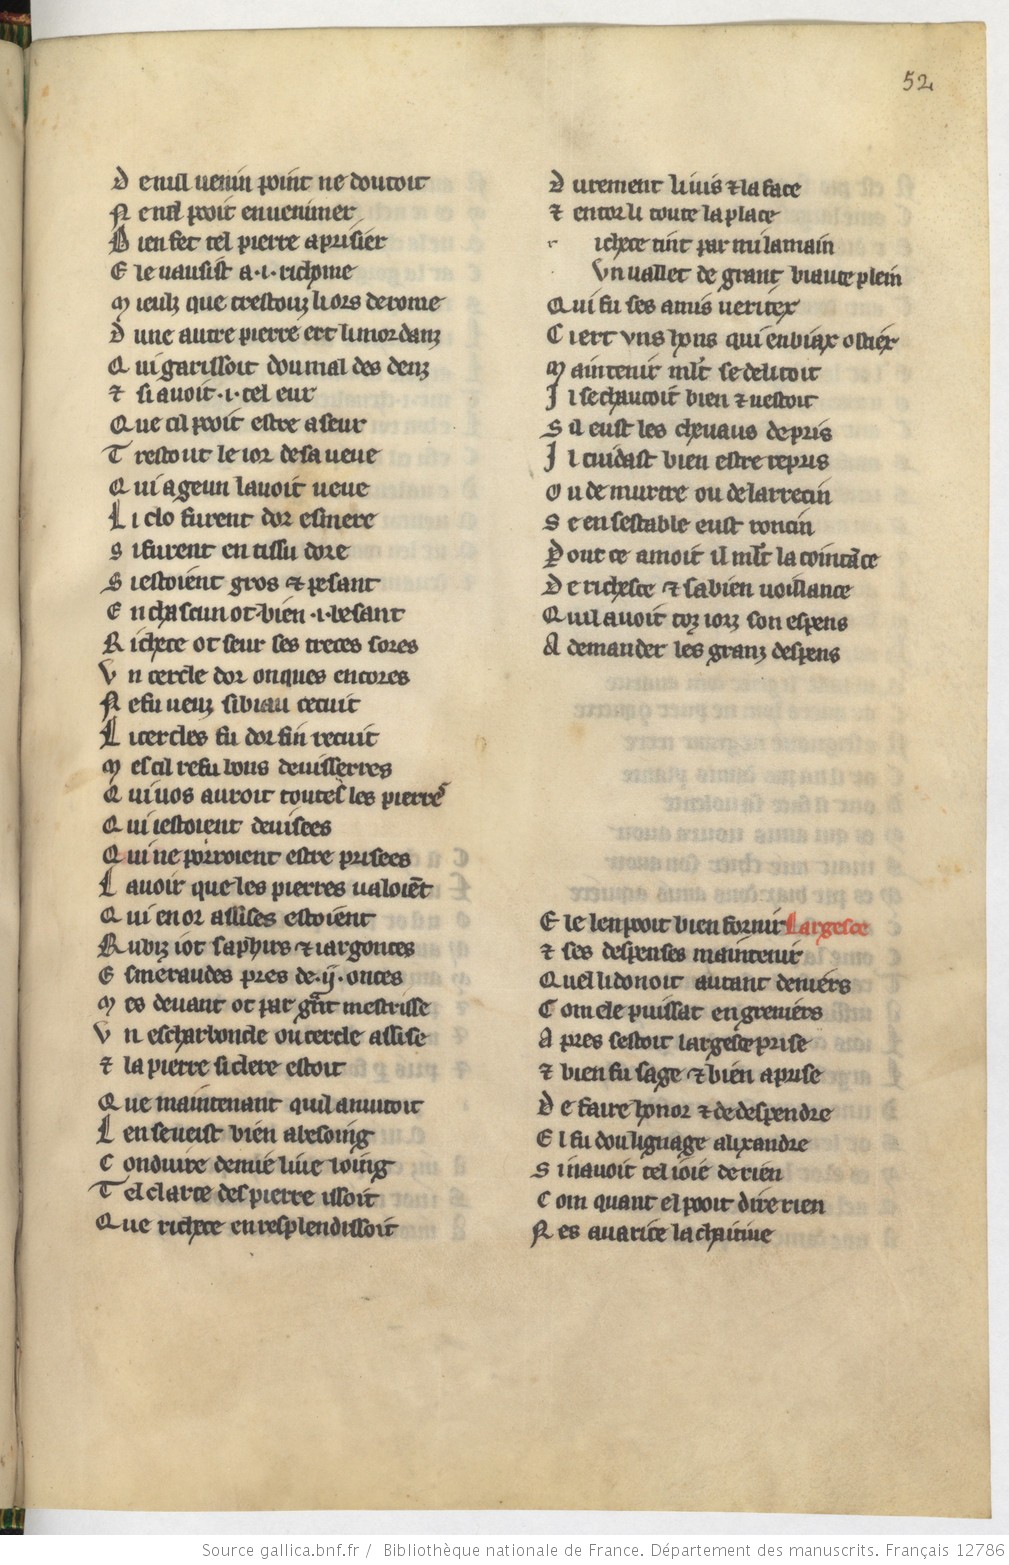 52
D e nul uenin point ne doutoit
N e nul pooit enuenimer
B ien fet tel pierre a prisier
E le uausist a .i. richome
M ieulz que trestouz li ors de rome
D une autre pierre ert li mordanz
Q ui garissoit dou mal des denz
⁊ si auoit .i. tel eur
Que cil pooit estre a seur
T restout le ior de sa ueue
Q ui a geun lauoit ueue
L i clo furent dor esmere
S i furent en tissu dore
S i estoient gros ⁊ pesant
E n chascun ot bien .i. besant
R ichece ot seur ses treces sores
V n cercle dor onques encores
N e fu ueuz si biau cecuit
L i cercles fu dor fin recuit
M es cil refu bons deuisserres
Q ui uos auroit toutes les pierres
Q ui i estoient deuisees
Q ui ne porroient estre prisees
L auoir que les pierres ualoient
Q ui en or assises estoient
Rubiz i ot saphirs ⁊ iargonces
E smeraudes pres de .ij. onces
M es deuant ot par grant mestrisse
V n escharboncle ou cercle assise
⁊ la pierre si clere estoit
Que maintenant quil anuitoit
L en seueist bien a besoing
C onduire demie liue loing
T el clarte des pierre issoit
Que richece en resplendissoit
D urement li uis ⁊ la face
⁊ entor li toute la place
r ichece tint par mi la main
Vn uallet de grant biaute plein
Q ui fu ses amis ueritex
C iert uns hons qui en biax ostiex
M aintenir mlt se delitoit
I l se chaucoit bien ⁊ uestoit
S il eust les cheuaus de pris
I l cuidast bien estre repris
O u de murtre ou de larrecin
S e en sestable eust roncin
P our ce amoit il mlt la cointace
D e richesce ⁊ sa bien uoillance
Quil auoit toz iorz son espens
A demander les granz despens
E le len pooit bien fornir Largesce
⁊ ses despenses maintenir
Quel li donoit autant deniers
C om ele puissat en greniers
A pres sestoit largesce prise
⁊ bien fu sage ⁊ bien aprise
D e faire honor ⁊ de despendre
E l fu dou liguage alixandre
S i nauoit tel ioie de rien
C om quant el pooit dire rien
N es auarice la chaitiue
Source gallica.bnf.fr / Bibliothèque nationale de France. Département des manuscrits. Français 12786